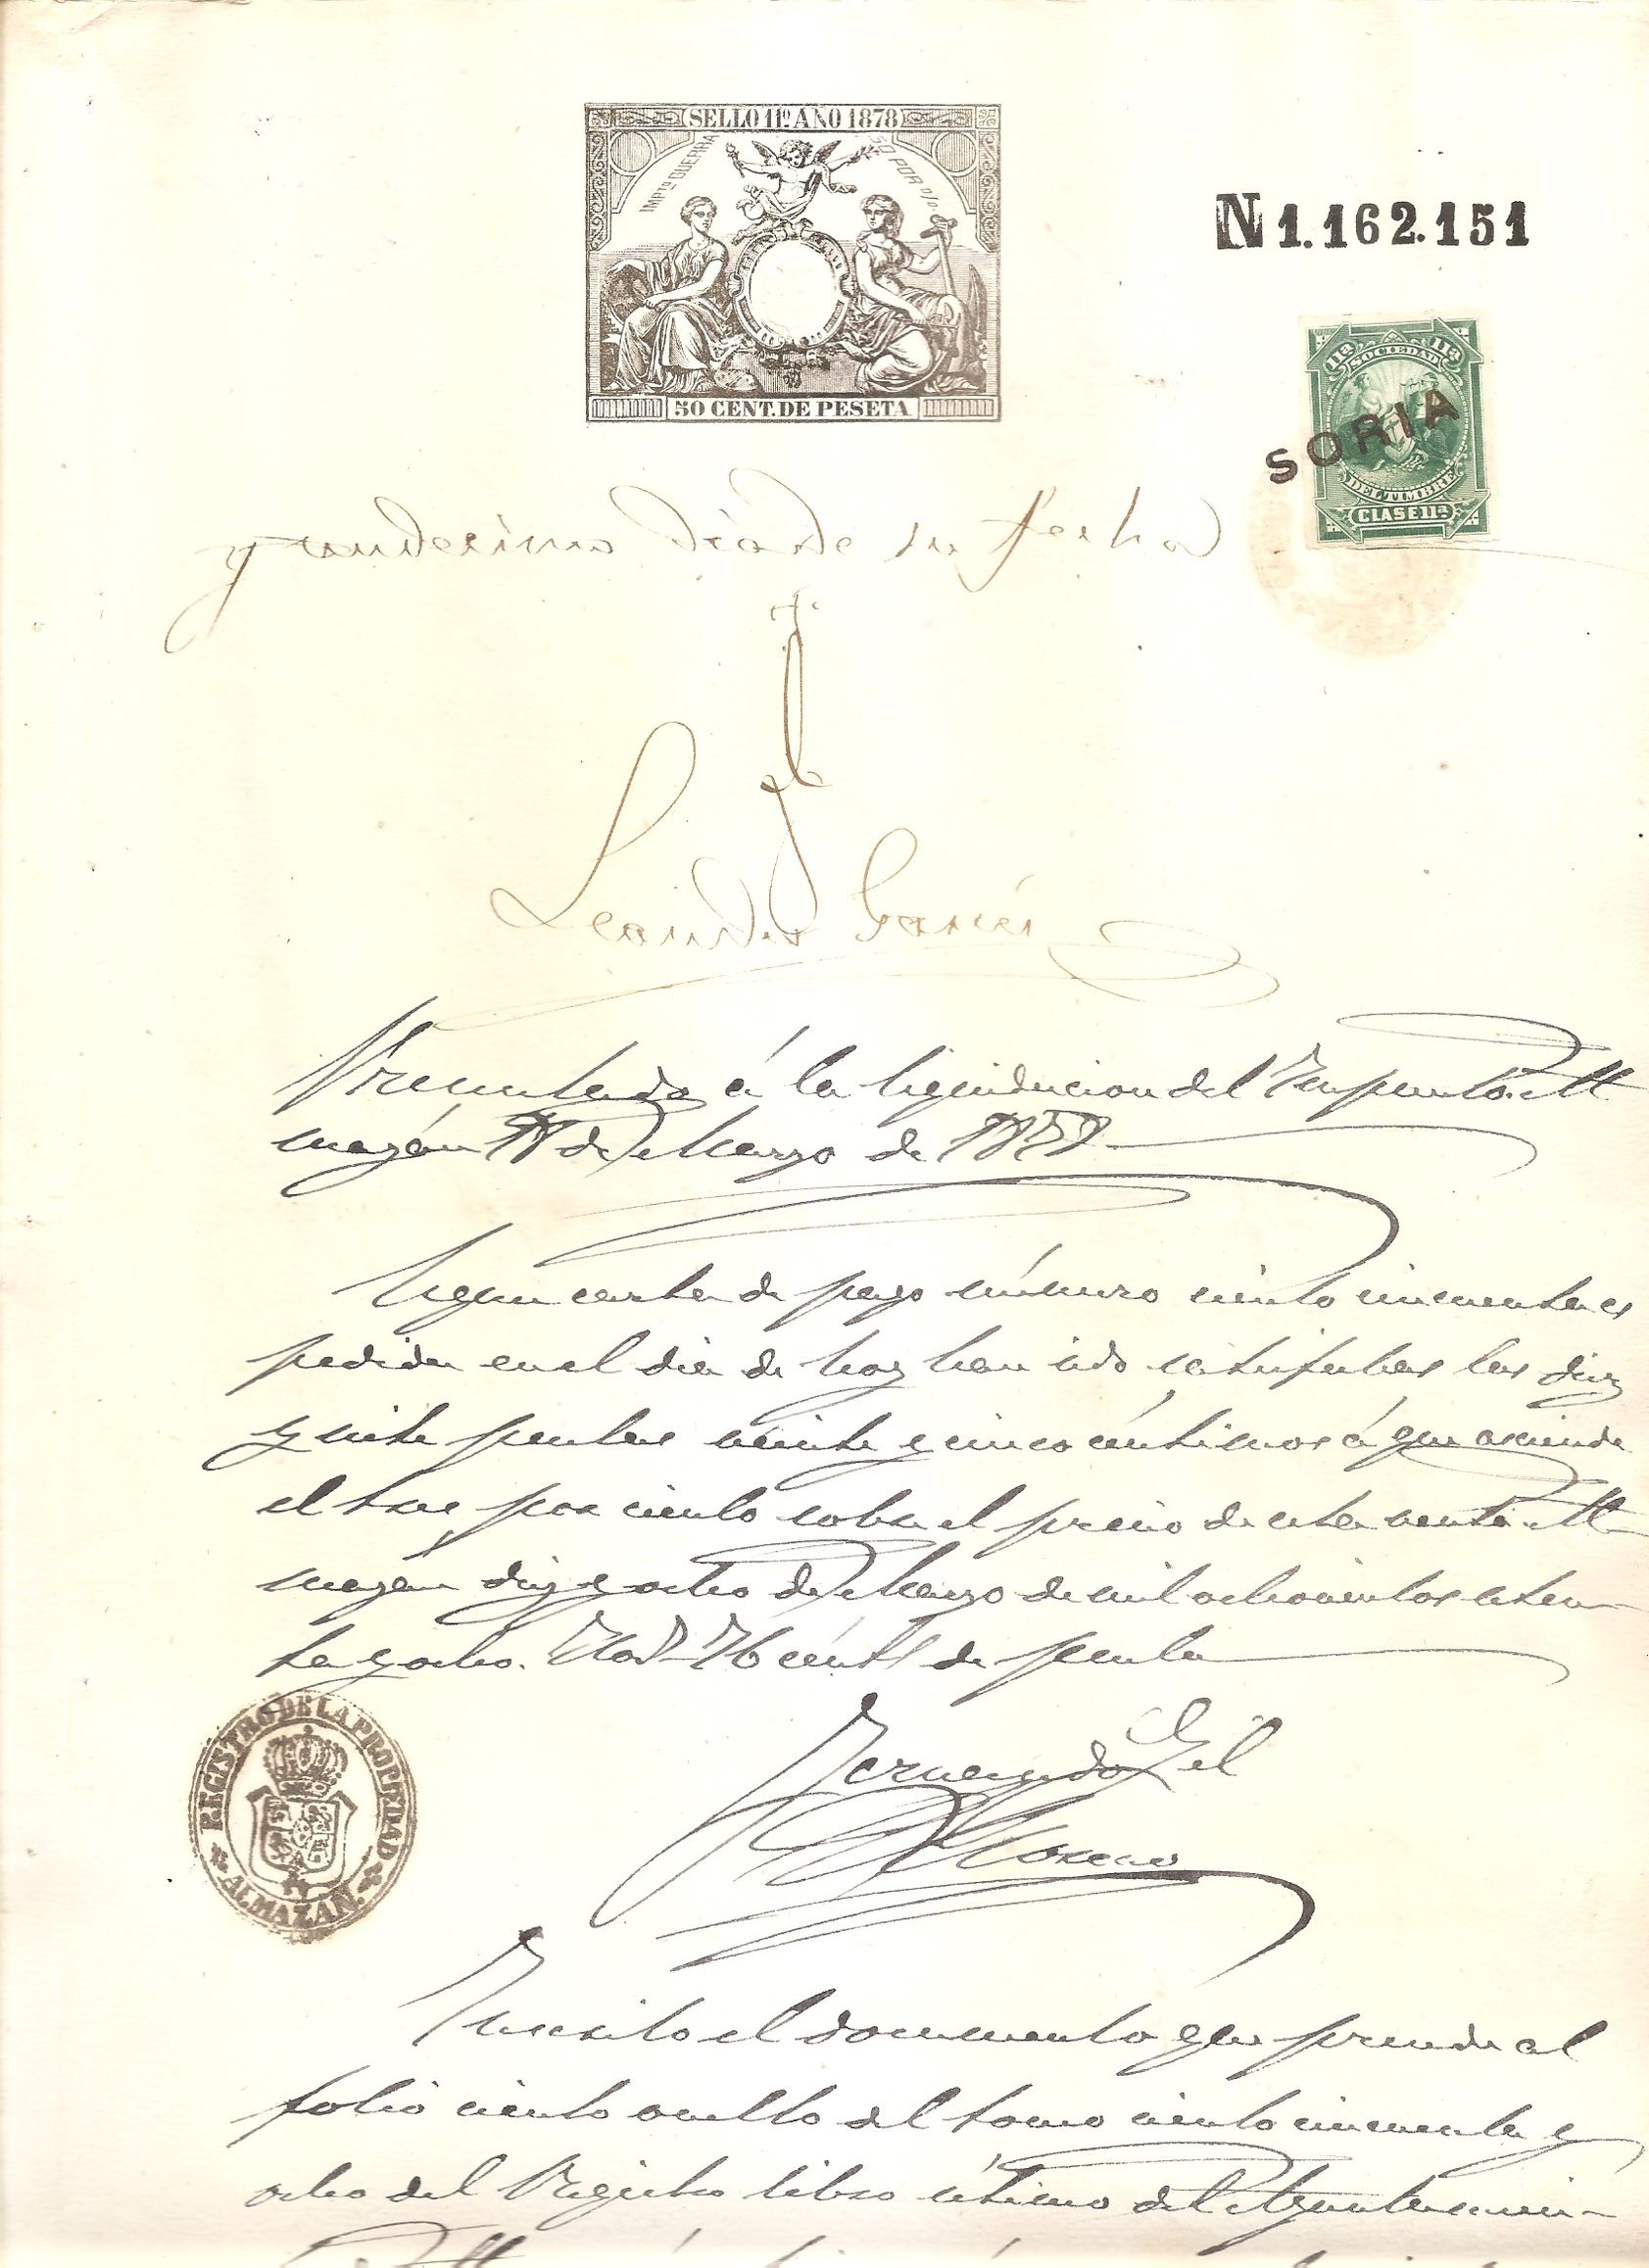 SELLO 11º AÑO 1878
IMPTO GUERRA
50 POR 0/0
50 CENT. DE PESETA
N 1.162.151
11ª 11ª
SOCIEDAD
DEL TIMBRE
CLASE 11ª
SORIA
y undecimo dia de su fecha
Leandro Garcés
Presentado á la liquidacion del Impuesto. Al
mazán 18 de Marzo de 1878
Segun carta de pago número ciento cincuenta es
pedida en el dia de hoy han sido satisfechas las diez
y siete pesetas veinte y cinco céntimos á que asciende
el tres por ciento sobre el precio de esta venta. Al
mazán diez y ocho de Marzo de mil ochocientos seten
ta y ocho. 76 cénts de peseta
Fernando Gil
Moreno
REGISTRO DE LA PROPIEDAD
ALMAZAN.
Inscrito el documento que precede al
folio ciento vuelto del tomo ciento cincuenta y
ocho del Registro libro sétimo del Ayuntamien